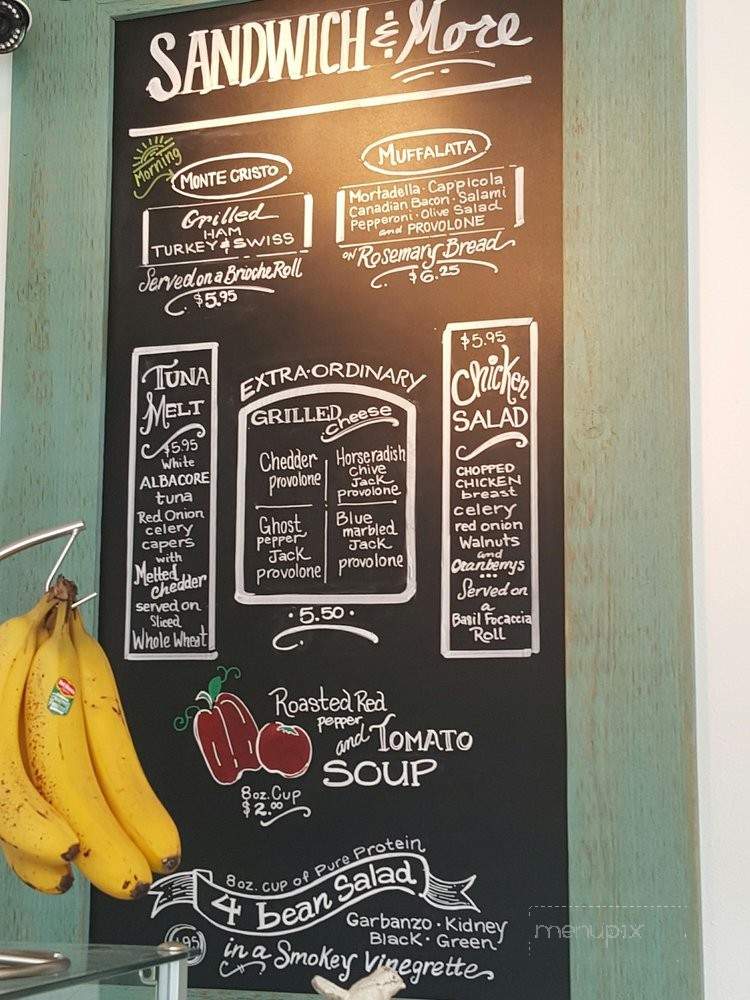 SANDWICH & More
Morning
MONTE CRISTO
Grilled
HAM
TURKEY & SWISS
Served on a Brioche Roll
$5.95
MUFFALATA
Mortadella · Cappicola
Canadian Bacon · Salami
Pepperoni · Olive Salad
and PROVOLONE
on Rosemary Bread
$6.25
TUNA
MELT
$5.95
White
ALBACORE
tuna
Red Onion
celery
capers
with
Melted
chedder
served on
Sliced
Whole Wheat
EXTRA·ORDINARY
GRILLED cheese
Chedder
provolone
Horseradish
chive
Jack
provolone
Ghost
pepper
Jack
provolone
Blue
marbled
Jack
provolone
· 5.50 ·
$5.95
Chicken
SALAD
CHOPPED
CHICKEN
breast
celery
red onion
Walnuts
and
Cranberrys
Served on
a
Basil Focaccia
Roll
Roasted Red
pepper
and TOMATO
SOUP
8oz. Cup
$2.00
8oz. cup of Pure Protein
4 bean Salad
Garbanzo · Kidney
Black · Green
in a Smokey Vinegrette
menupix